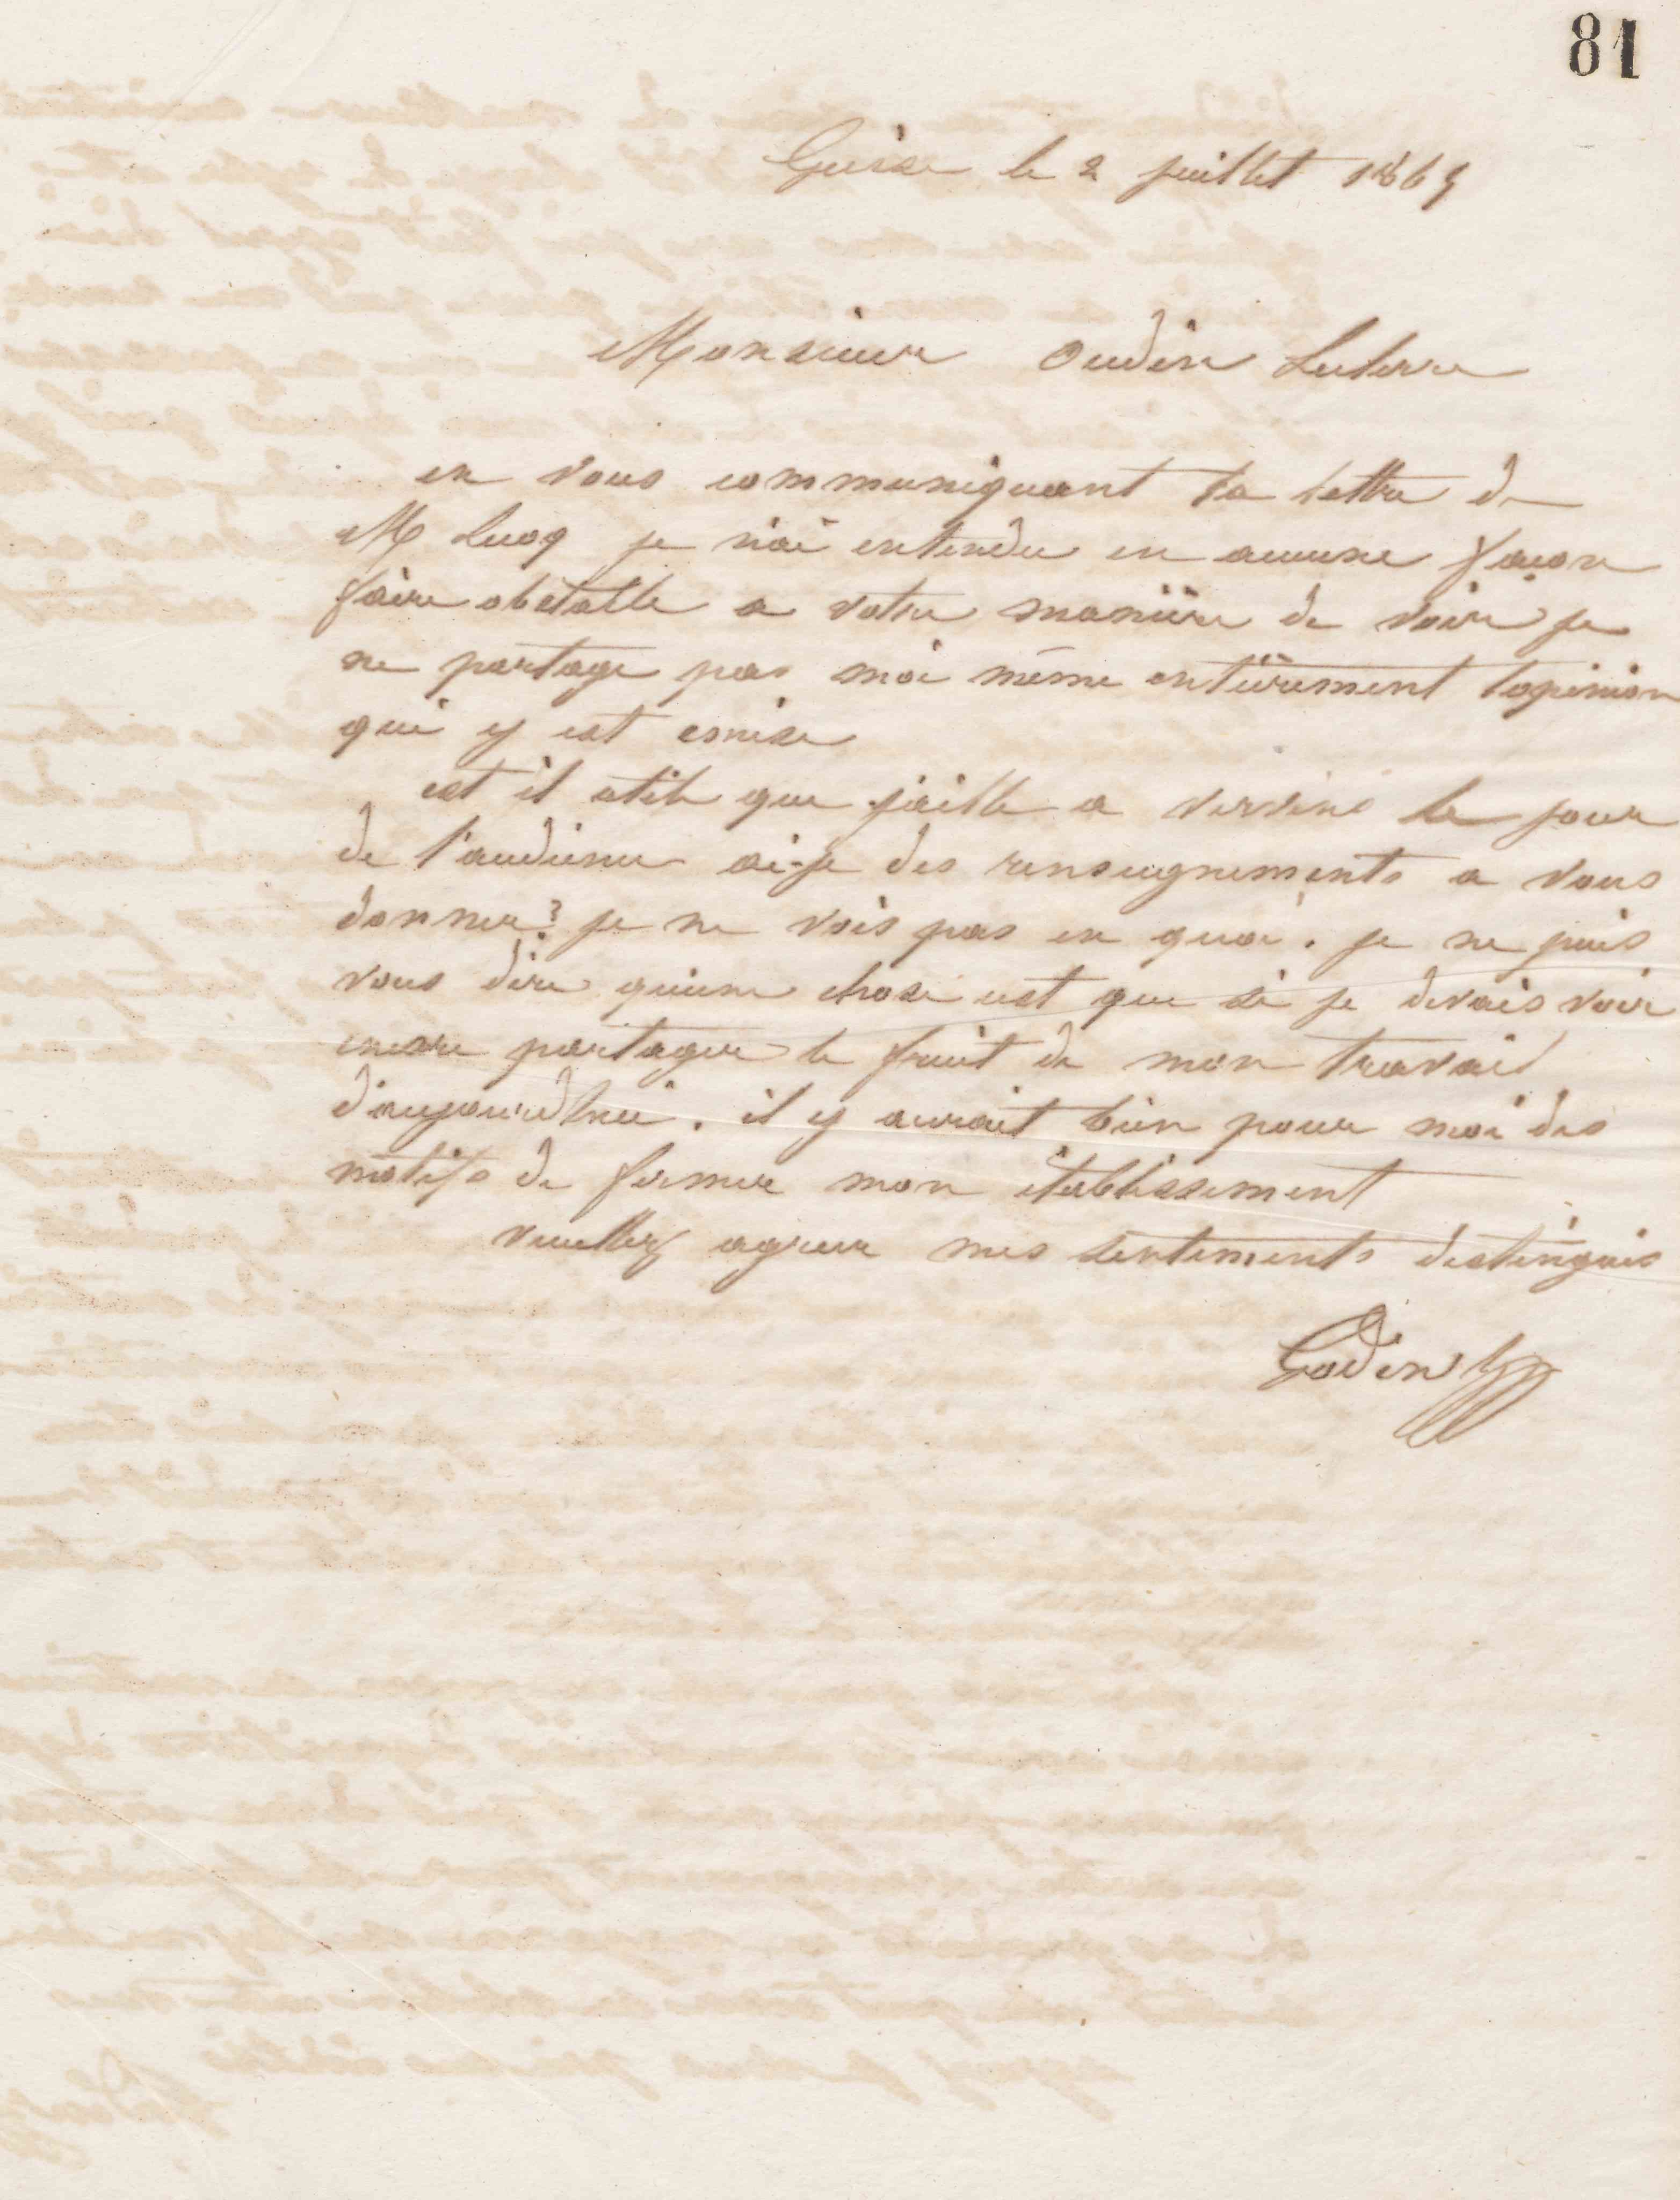 81
Guise le 2 juillet 186
Monsieur Oudin Leclerre
en vous communiquant la lettre de
M Lucq je n'ai entendu en aucune facon
faire obstacle a votre manière de voir je
ne partage pas moi même entièrement l'opinion
qui y est emise
est il utile que j'aille a vervins le jour
de l'audience ai-je des renseignements a vous
donner? je ne vois pas en quoi. je ne puis
vous dire qu'une chose est que si je devais voir
encore partager le fruit de mon travail
d'aujourd'hui. il y aurait bien pour moi des
motifs de fermer mon établissement
veuillez agreer mes sentiments distingués
Godin